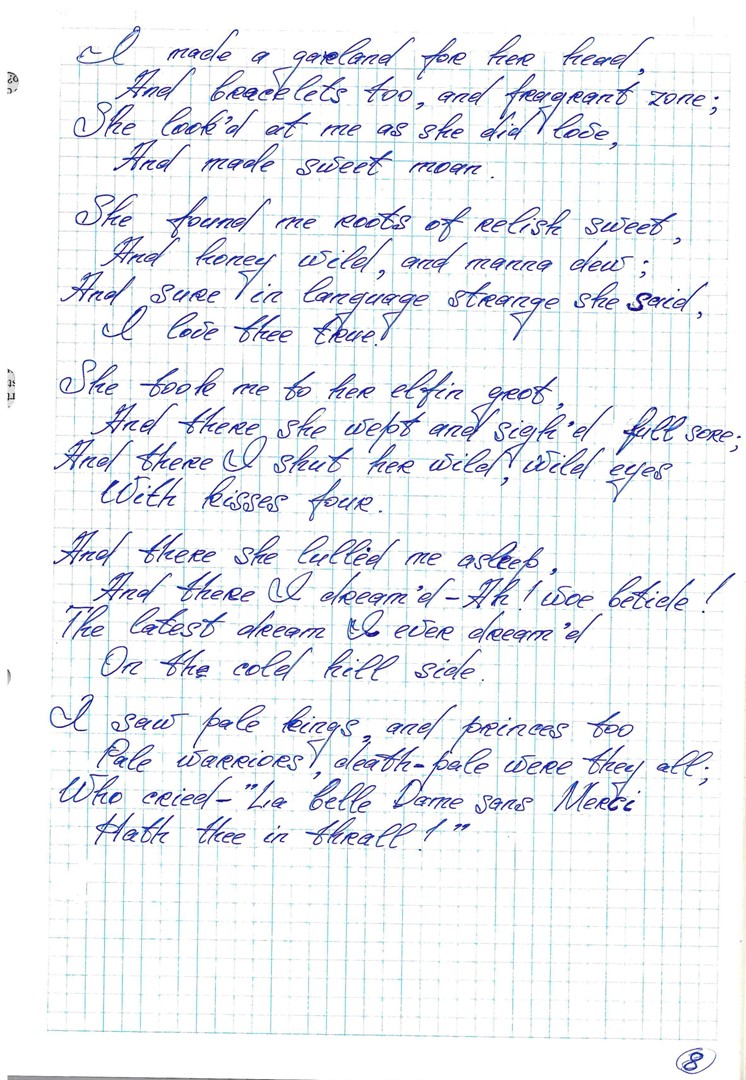 I made a garland for her head,
And bracelets too, and fragrant zone;
She look'd at me as she did love,
And made sweet moan.
She found me roots of relish sweet,
And honey wild, and manna dew;
And sure in language strange she said,
I love thee true.
She took me to her elfin grot,
And there she wept and sigh'd full sore;
And there I shut her wild, wild eyes
With kisses four.
And there she lulled me asleep,
And there I dream'd - Ah! woe betide!
The latest dream I ever dream'd
On the cold hill side.
I saw pale kings, and princes too
Pale warriors, death-pale were they all;
Who cried - "La belle Dame sans Merci
Hath thee in thrall!"
8